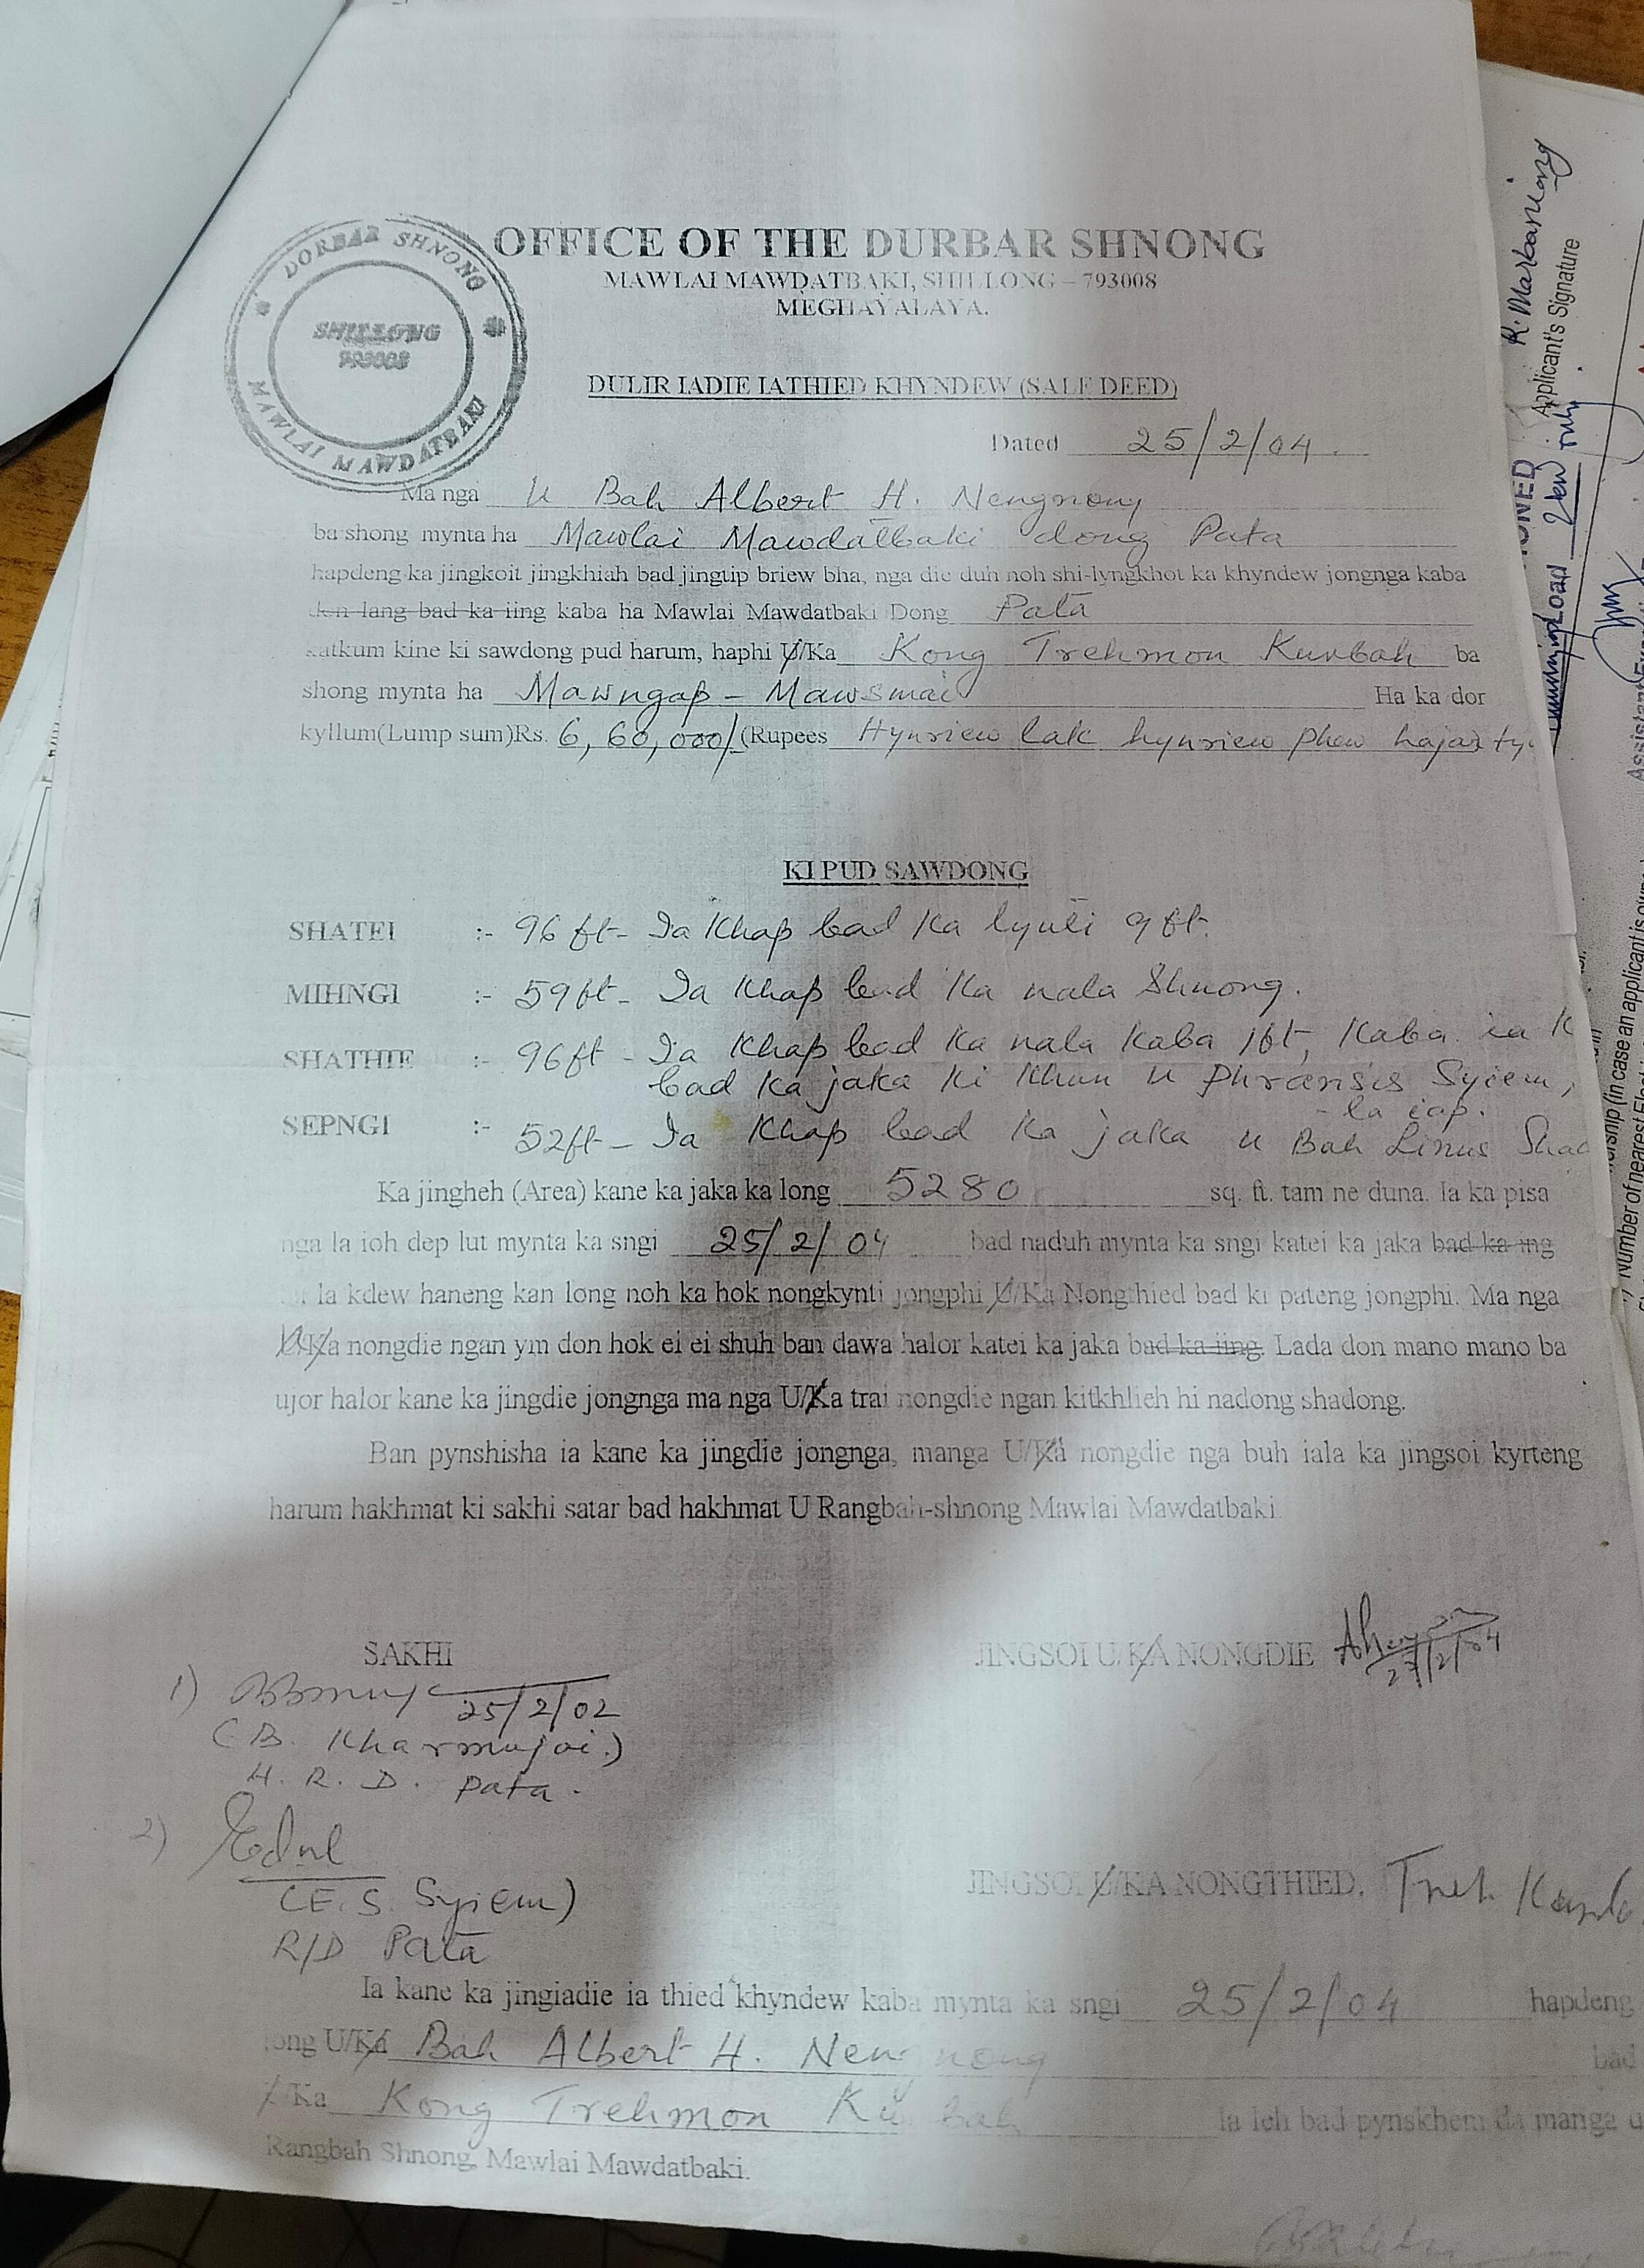 OFFICE OF THE DURBAR SHNONG
MAWLAI MAWDATBAKI, SHILLONG – 793008
MEGHAYALAYA.
DORBAR SHNONG
SHILLONG
793008
MAWLAI MAWDATBAKI
DULIR IADIE IATHIED KHYNDEW (SALE DEED)
Dated 25/2/04.
Ma nga U Bah Albert H. Nengnong
ba shong mynta ha Mawlai Mawdatbaki dong Pata
hapdeng ka jingkoit jingkhiah bad jingtip briew bha, nga die duh noh shi-lyngkhot ka khyndew jongnga kaba
don lang bad ka iing kaba ha Mawlai Mawdatbaki Dong Pata
katkum kine ki sawdong pud harum, haphi U/Ka Kong Trehmon Kurbah ba
shong mynta ha Mawngap - Mawsmai Ha ka dor
kyllum(Lump sum)Rs. 6,60,000/- (Rupees Hynriew lak hynriew phew hajar
KI PUD SAWDONG
SHATEI :- 96 ft - Ia Khap bad Ka lynti 9 ft.
MIHNGI :- 59 ft - Ia Khap bad Ka nala Shnong.
SHATHIE :- 96 ft - Ia Khap bad Ka nala Kaba 1ft, Kaba ia K
bad Ka jaka Ki Khun U Phransis Syiem,
- la iap.
SEPNGI :- 52 ft - Ia Khap bad Ka jaka U Bah Linus
Ka jingheh (Area) kane ka jaka ka long 5280 sq. ft. tam ne duna. Ia ka pisa
nga la ioh dep lut mynta ka sngi 25/2/04 bad naduh mynta ka sngi katei ka jaka bad ka ing
la kdew haneng kan long noh ka hok nongkynti jongphi U/Ka Nongthied bad ki pateng jongphi. Ma nga
U/Ka nongdie ngan ym don hok ei ei shuh ban dawa halor katei ka jaka bad ka iing. Lada don mano mano ba
ujor halor kane ka jingdie jongnga ma nga U/Ka trai nongdie ngan kitkhlieh hi nadong shadong.
Ban pynshisha ia kane ka jingdie jongnga, manga U/Ka nongdie nga buh iala ka jingsoi kyrteng
harum hakhmat ki sakhi satar bad hakhmat U Rangbah-shnong Mawlai Mawdatbaki.
SAKHI
JINGSOI U/KA NONGDIE
1) 25/2/02
(B. Kharmujai.)
H. R. D. Pata.
2)
(E. S. Syiem)
R/D Pata
JINGSOI U/KA NONGTHIED.
Ia kane ka jingiadie ia thied khyndew kaba mynta ka sngi 25/2/04 hapdeng
jong U/Ka Bah Albert H. Nengnong bad
U/Ka Kong Trehmon Kurbah la leh bad pynskhem da manga u
Rangbah Shnong, Mawlai Mawdatbaki.
R. Marbaniang
Applicant's Signature
(in case an applicant is
Number of nearest